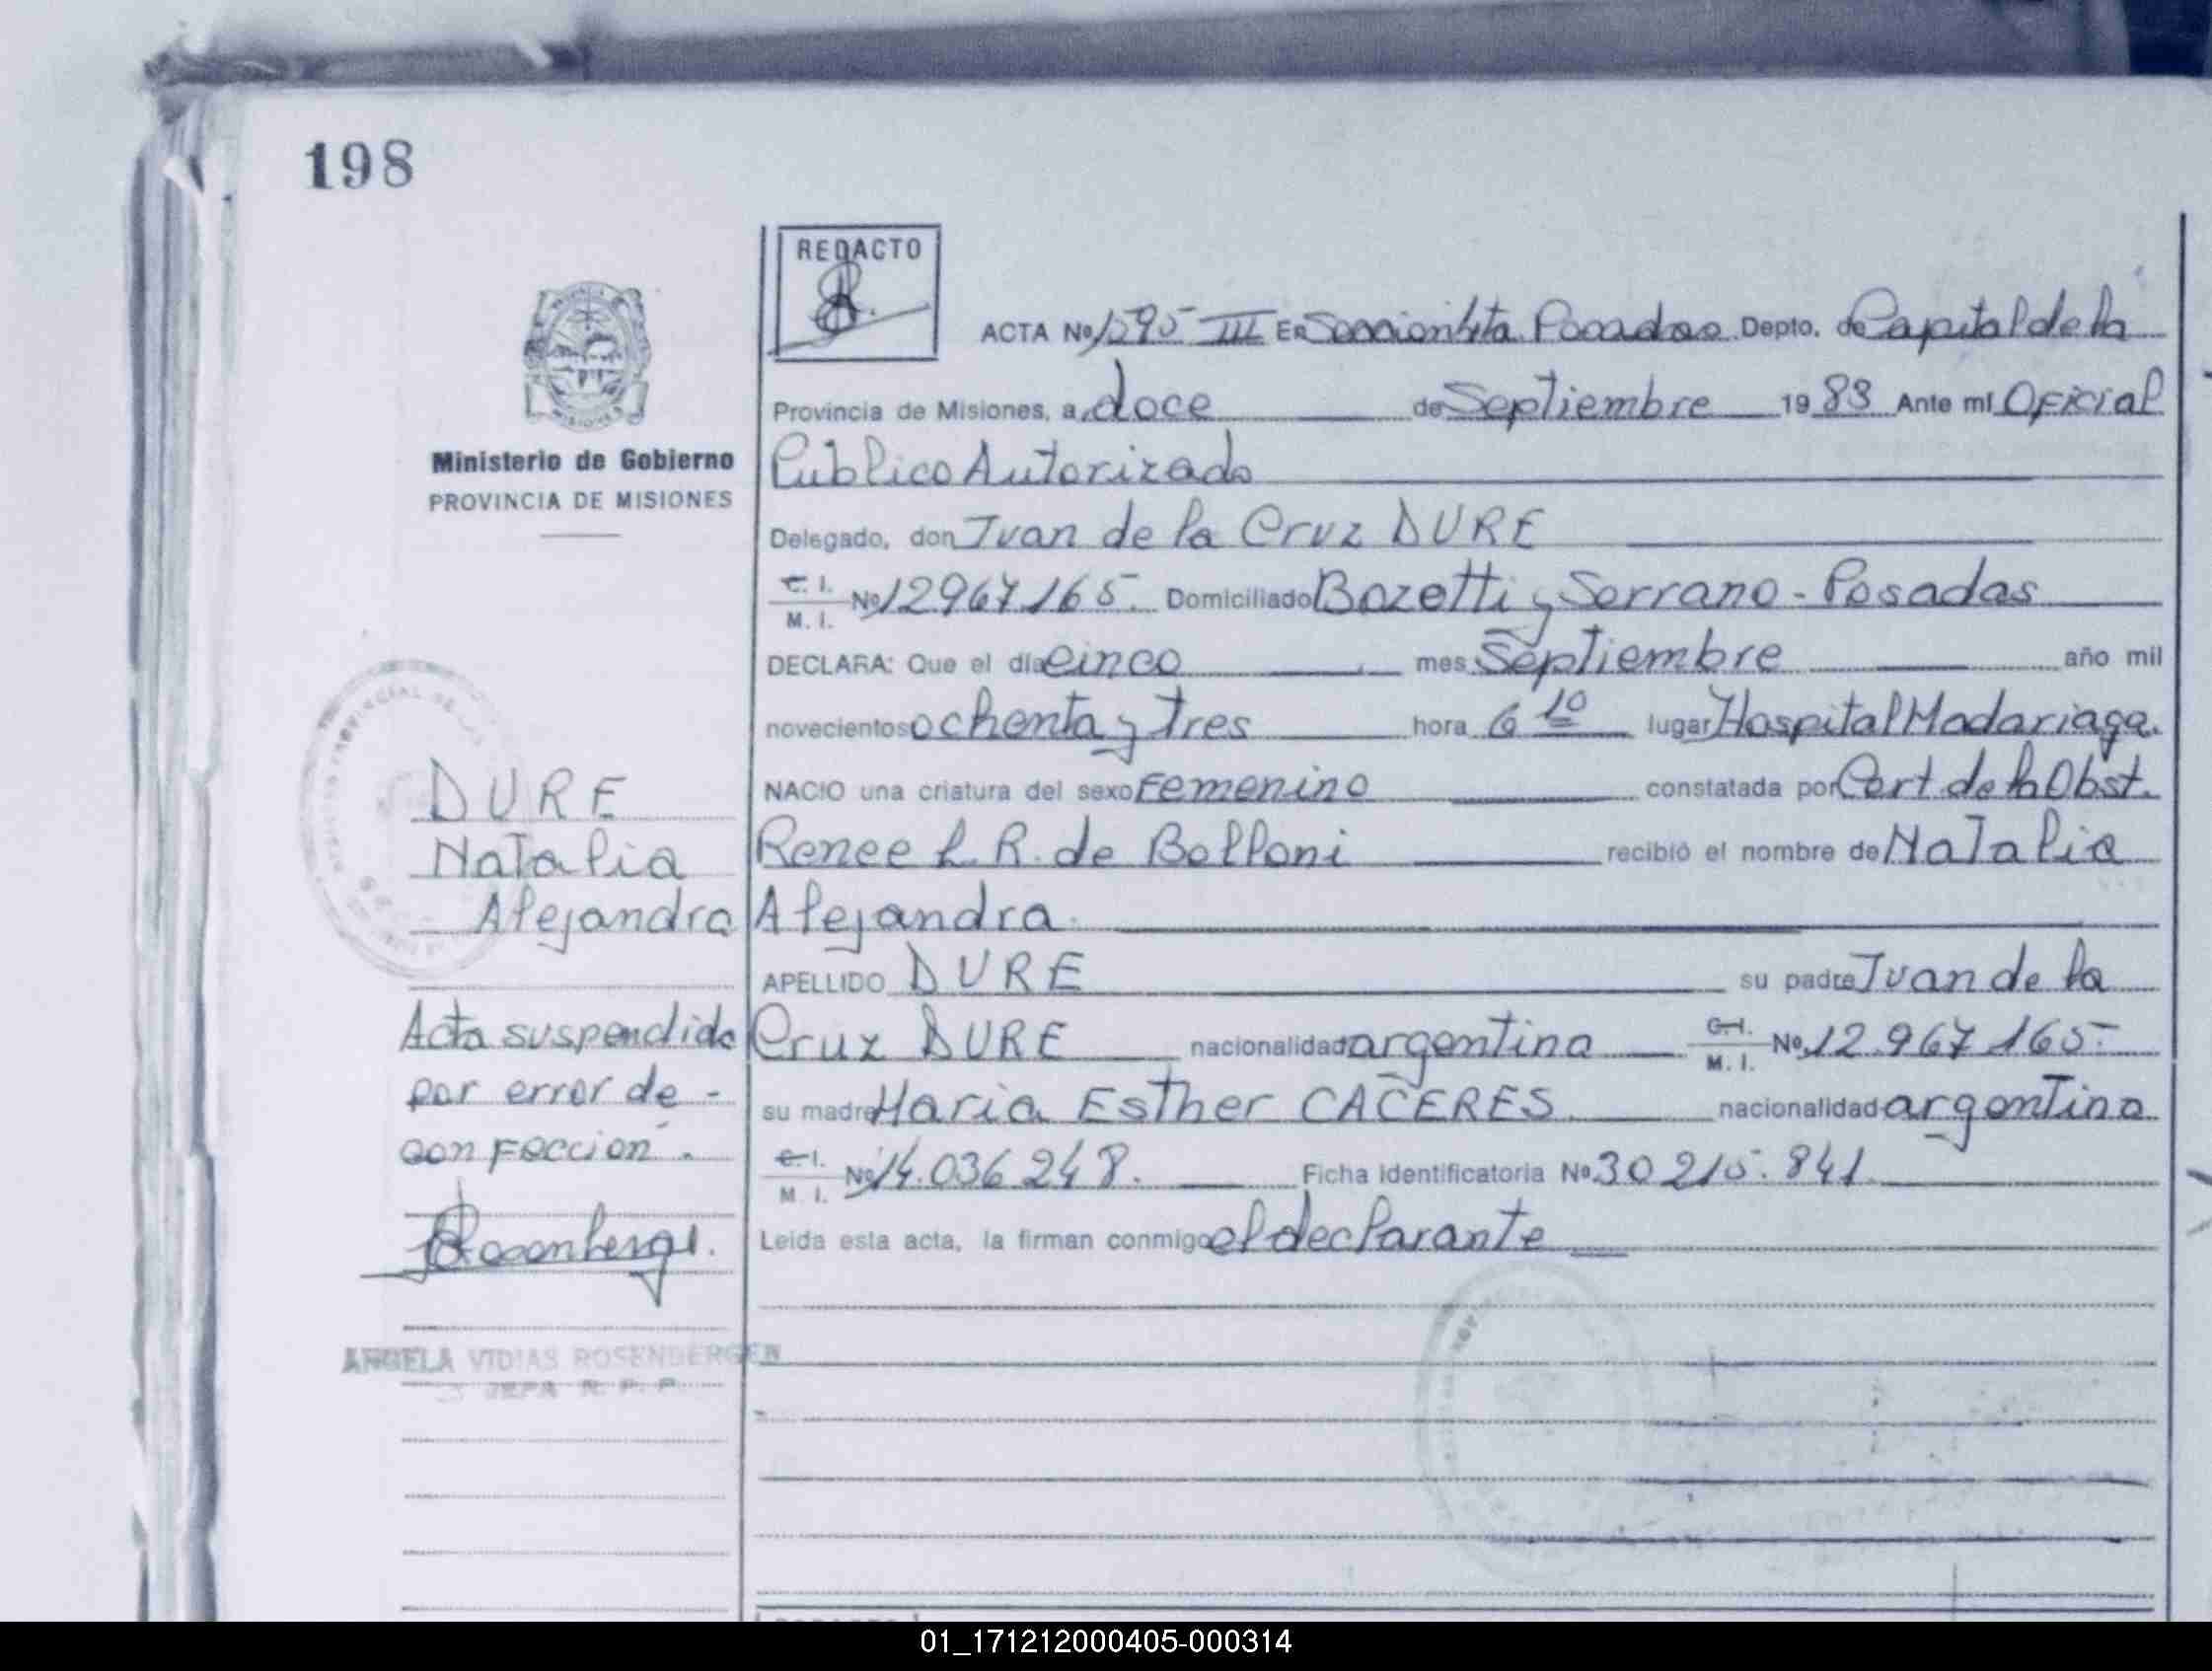 198
REDACTO
ACTA Nº 1595 III En Seccion 4ta. Posadas Depto. de Capital de la
Provincia de Misiones, a doce de Septiembre 1983 Ante mí Oficial
Ministerio de Gobierno
PROVINCIA DE MISIONES
Publico Autorizado
Delegado, don Juan de la Cruz DURE
C. I. M. I. Nº 12967.165. Domiciliado Bozetti y Serrano - Posadas
DECLARA: Que el día cinco mes Septiembre año mil
novecientos ochenta y tres hora 6 10 lugar Hospital Madariaga.
NACIO una criatura del sexo Femenino constatada por Cert. de la Obst.
Renee L. R. de Belloni recibió el nombre de Natalia
Alejandra.
APELLIDO DURE su padre Juan de la
Cruz DURE nacionalidad argentina C. I. M. I. Nº 12.967.165-
su madre Maria Esther CACERES nacionalidad argentina
C. I. M. I. Nº 14.036.248. Ficha Identificatoria Nº 30.215.841.
Leída esta acta, la firman conmigo el declarante
DURE
Natalia
Alejandra
Acta suspendida
por error de -
confeccion.
Rosenberge.
ANGELA VIDIAS ROSENBERGEN
JEFA R. P. P.
01_171212000405-000314